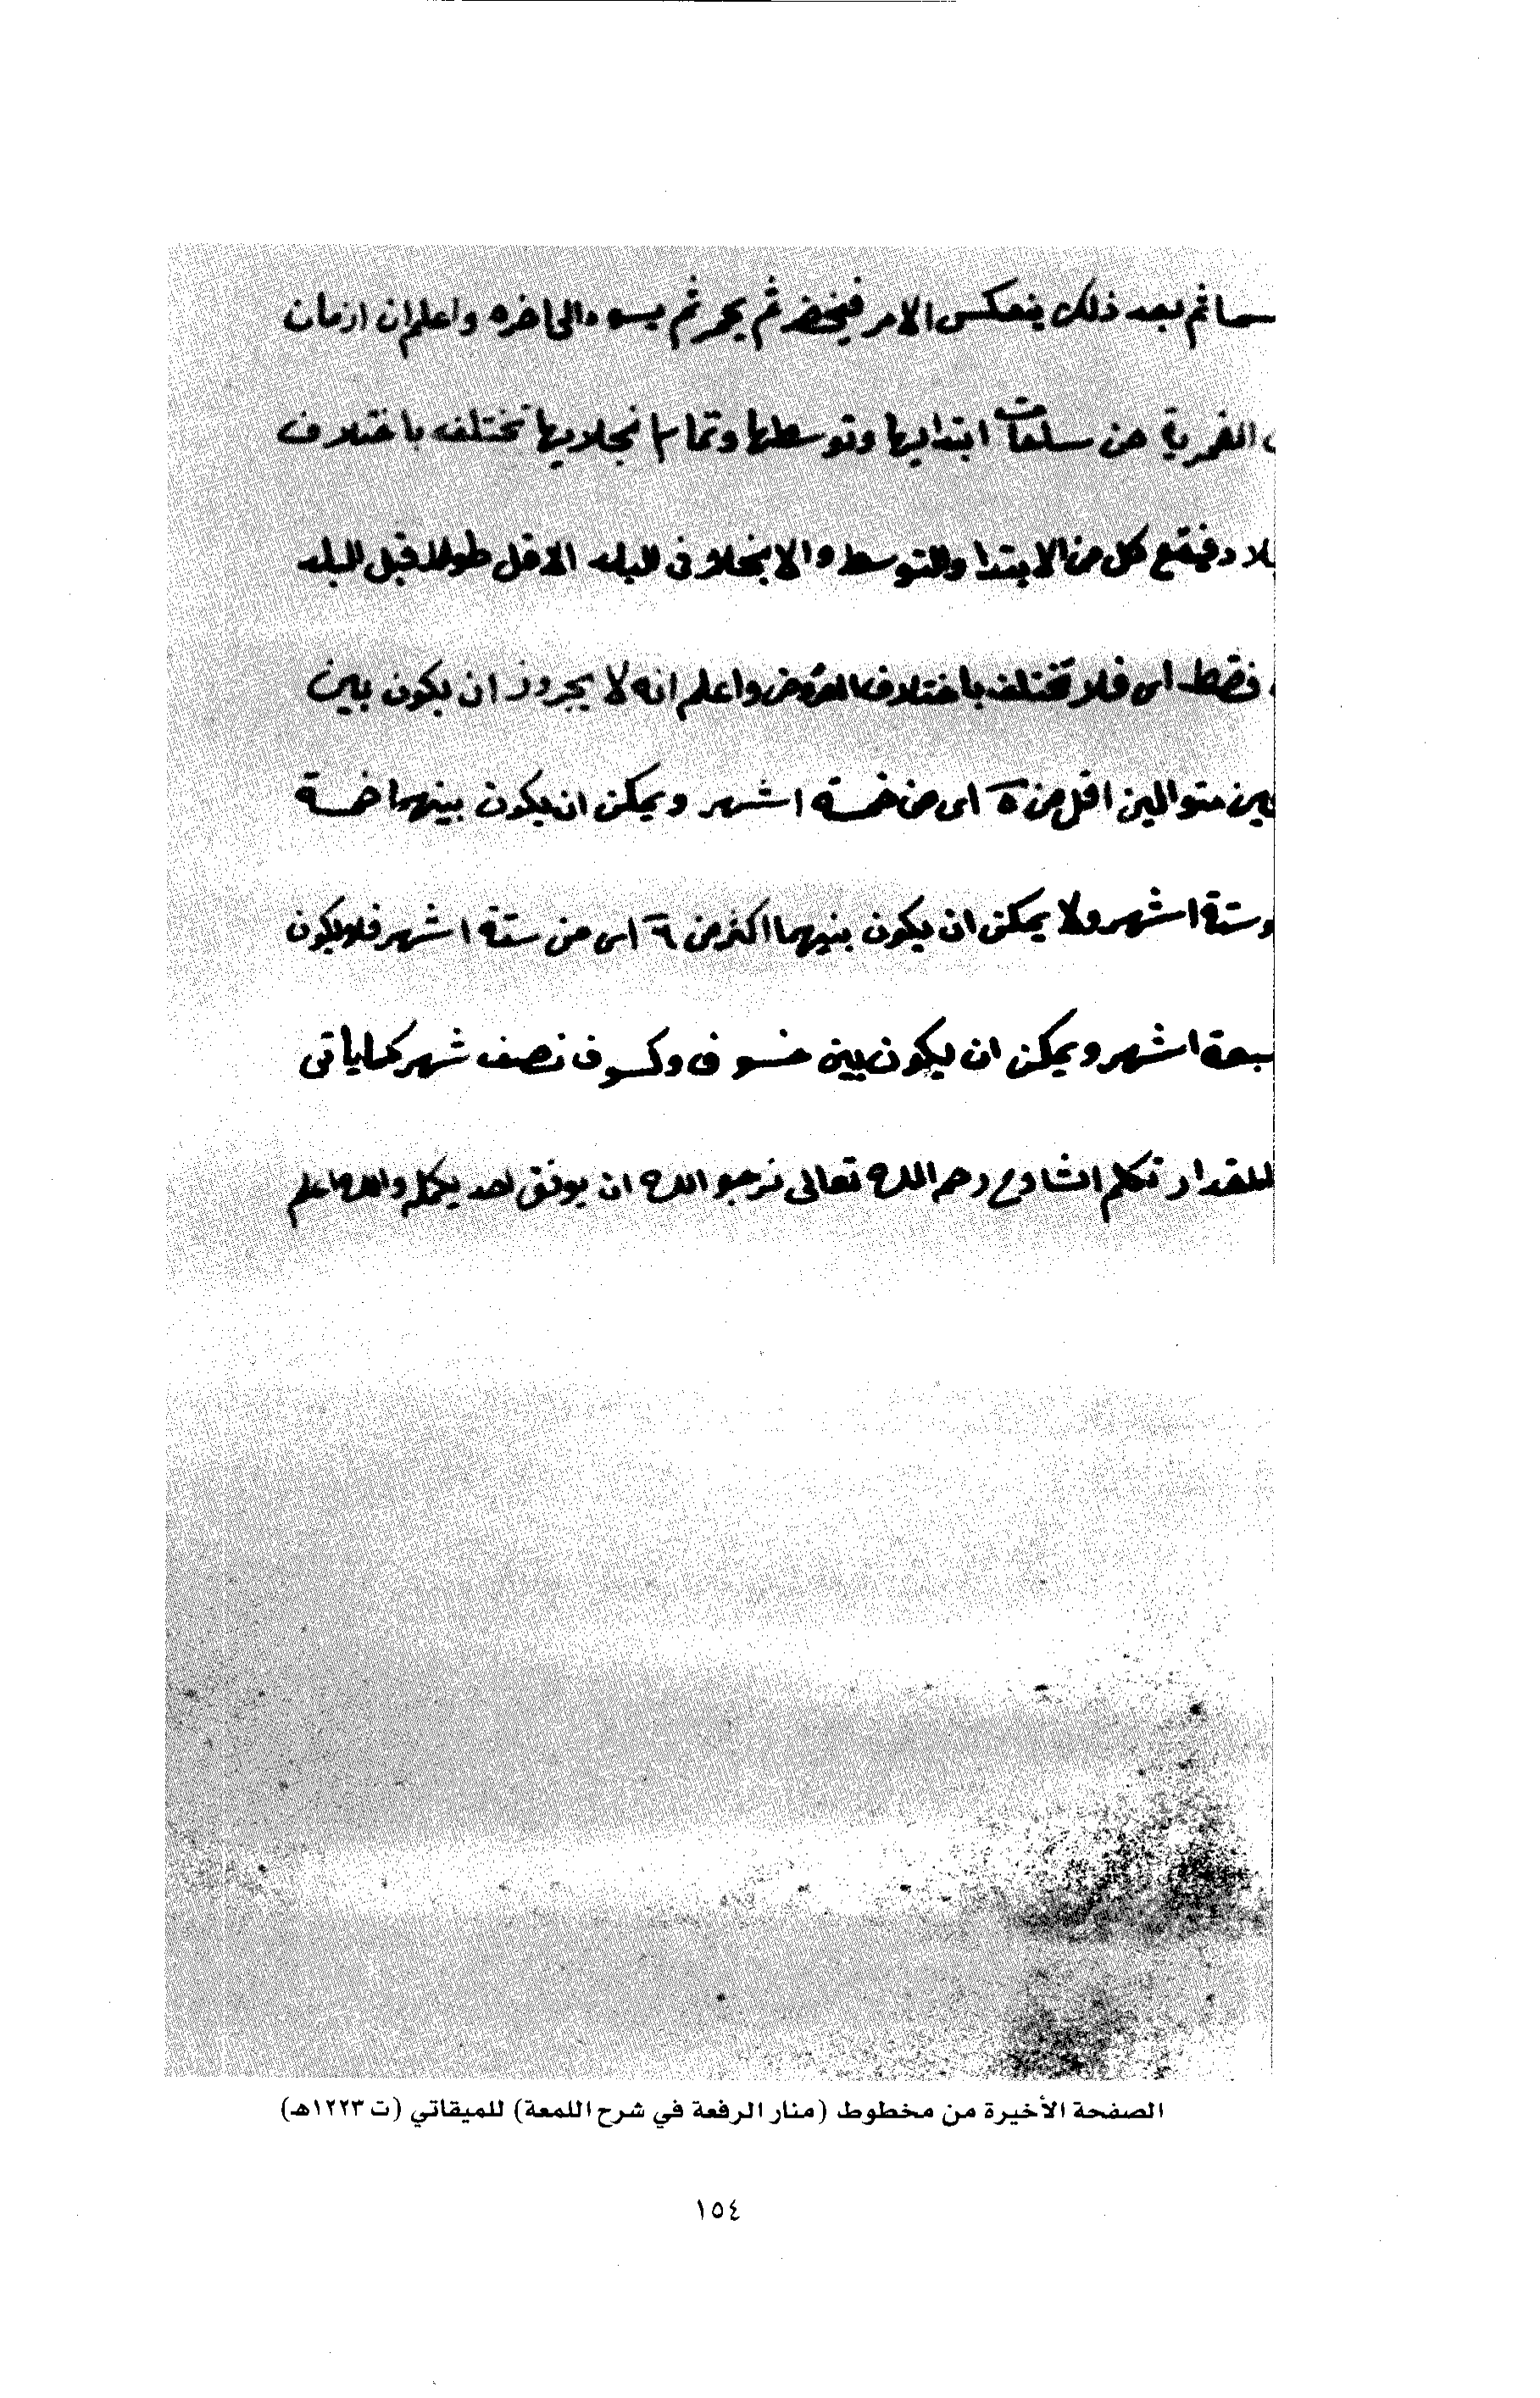 سما ثم بعد ذلك ينعكس الامر فيخضر ثم يحمر ثم يسود الى اخره واعلم ان ازمان
القمرية من ساعات ابتدايها وتوسطها وتمام انجلايها تختلف باختلاف
بلاد فيقع كل من الابتدا والتوسط والانجلا فى البلد الاقل طولا قبل البلد
فقط اى فلا تختلف باختلاف العروض واعلم انه لا يجوز ان يكون بين
ين متوالين اقل من ٥ اى من خمسة اشهر ويمكن ان يكون بينهما خمسة
وستة اشهر ولا يمكن ان يكون بينهما اكثر من ٦ اى من ستة اشهر فلا يكون
سبعة اشهر ويمكن ان يكون بين خسوف وكسوف نصف شهر كما ياتى
المقدار تكلم الشارح رحم الله تعالى نرجو الله ان يوفق احد يكمله والله اعلم
الصفحة الأخيرة من مخطوط (منار الرفعة في شرح اللمعة) للميقاتي (ت ١٢٢٣هـ)
١٥٤